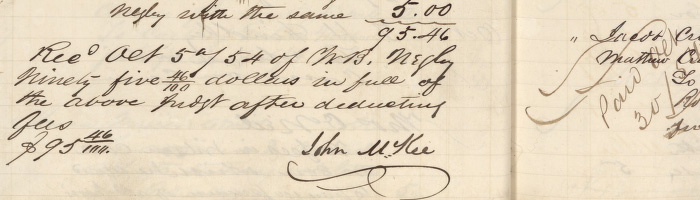 Negly with the same 5.00
95.46
Recd Oct 5th/54 of W.B. Negly
Ninety five 46/100 dollars in full of
the above Judgt after deducting
fees
$95 46/100.
John McKee
" Jacob
Mathew
To
Paid Oct
30/